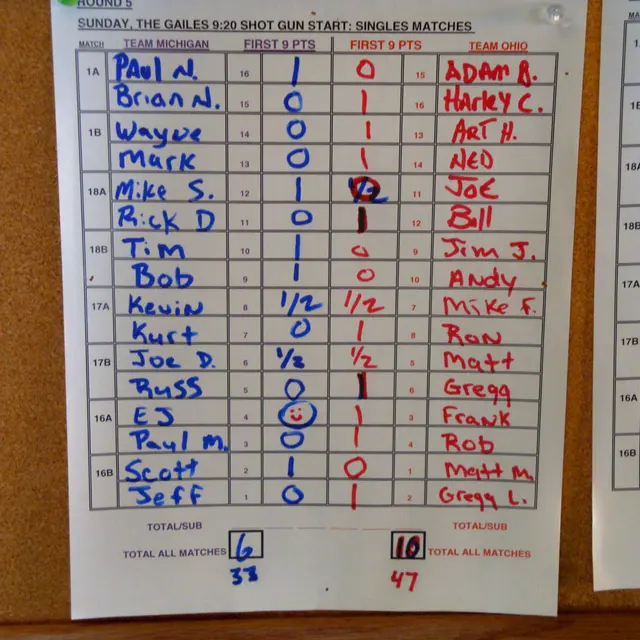 ROUND 5
SUNDAY, THE GAILES 9:20 SHOT GUN START: SINGLES MATCHES
MATCH TEAM MICHIGAN FIRST 9 PTS FIRST 9 PTS TEAM OHIO
1A PAUL N. 16 1 0 15 ADAM B.
Brian N. 15 0 1 16 HArley C.
1B Wayne 14 0 1 13 ART H.
Mark 13 0 1 14 NED
18A Mike S. 12 1 11 JOE
Rick D 11 0 1 12 Bill
18B Tim 10 1 0 9 Jim J.
Bob 9 1 0 10 Andy
17A Kevin 8 1/2 1/2 7 Mike F.
Kurt 7 0 1 8 Ron
17B Joe D. 6 1/2 1/2 5 Matt
Russ 5 0 1 6 Gregg
16A EJ 4 1 3 Frank
Paul M. 3 0 1 4 Rob
16B Scott 2 1 0 1 Matt M.
Jeff 1 0 1 2 Gregg L.
TOTAL/SUB TOTAL/SUB
TOTAL ALL MATCHES 6 10 TOTAL ALL MATCHES
33 47
1
1B
18A
18B
17A
17B
16A
16B